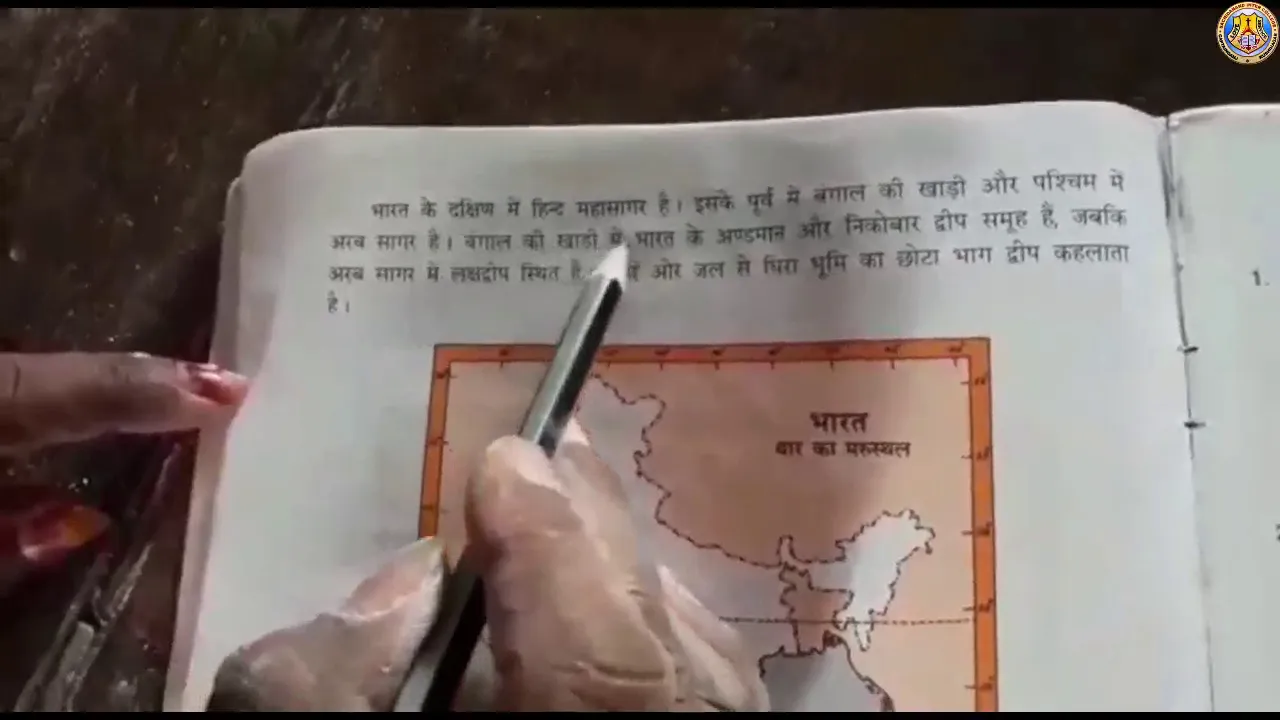 भारत के दक्षिण में हिन्द महासागर है। इसके पूर्व में बंगाल की खाड़ी और पश्चिम में
अरब सागर है। बंगाल की खाड़ी में भारत के अण्डमान और निकोबार द्वीप समूह हैं, जबकि
अरब सागर में लक्षद्वीप स्थित है ओर जल से घिरा भूमि का छोटा भाग द्वीप कहलाता
है।
1.
भारत
थार का मरुस्थल